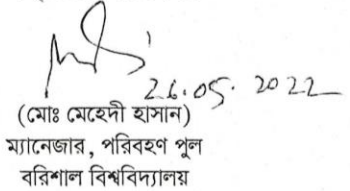 26.05.2022
(মোঃ মেহেদী হাসান)
ম্যানেজার, পরিবহণ পুল
বরিশাল বিশ্ববিদ্যালয়